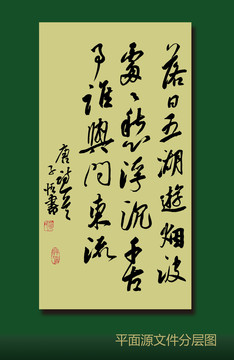 落日五湖遊烟波
處々愁浮沉千古
事誰與問東流
唐
書
平面源文件分层图